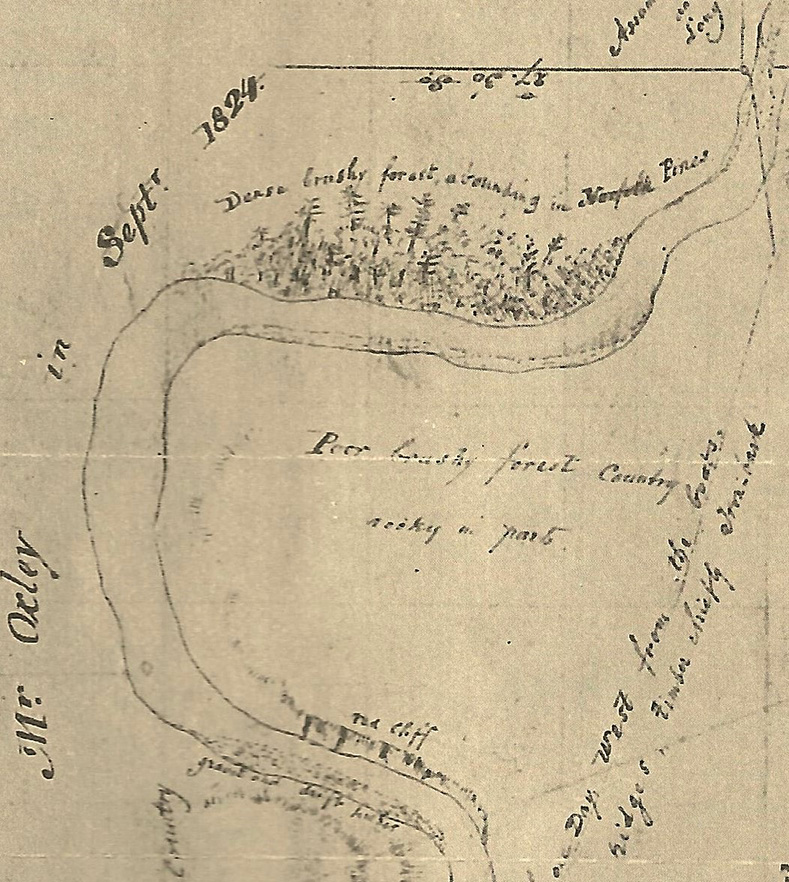 Mr. Oxley
in
Septr. 1824.
Dense brushy forest, abounding in Norfolk Pines
Poor brushy forest Country
rocky in part.
red cliff
Country
Day West from the boats,
ridges, timber chiefly Iron-bark